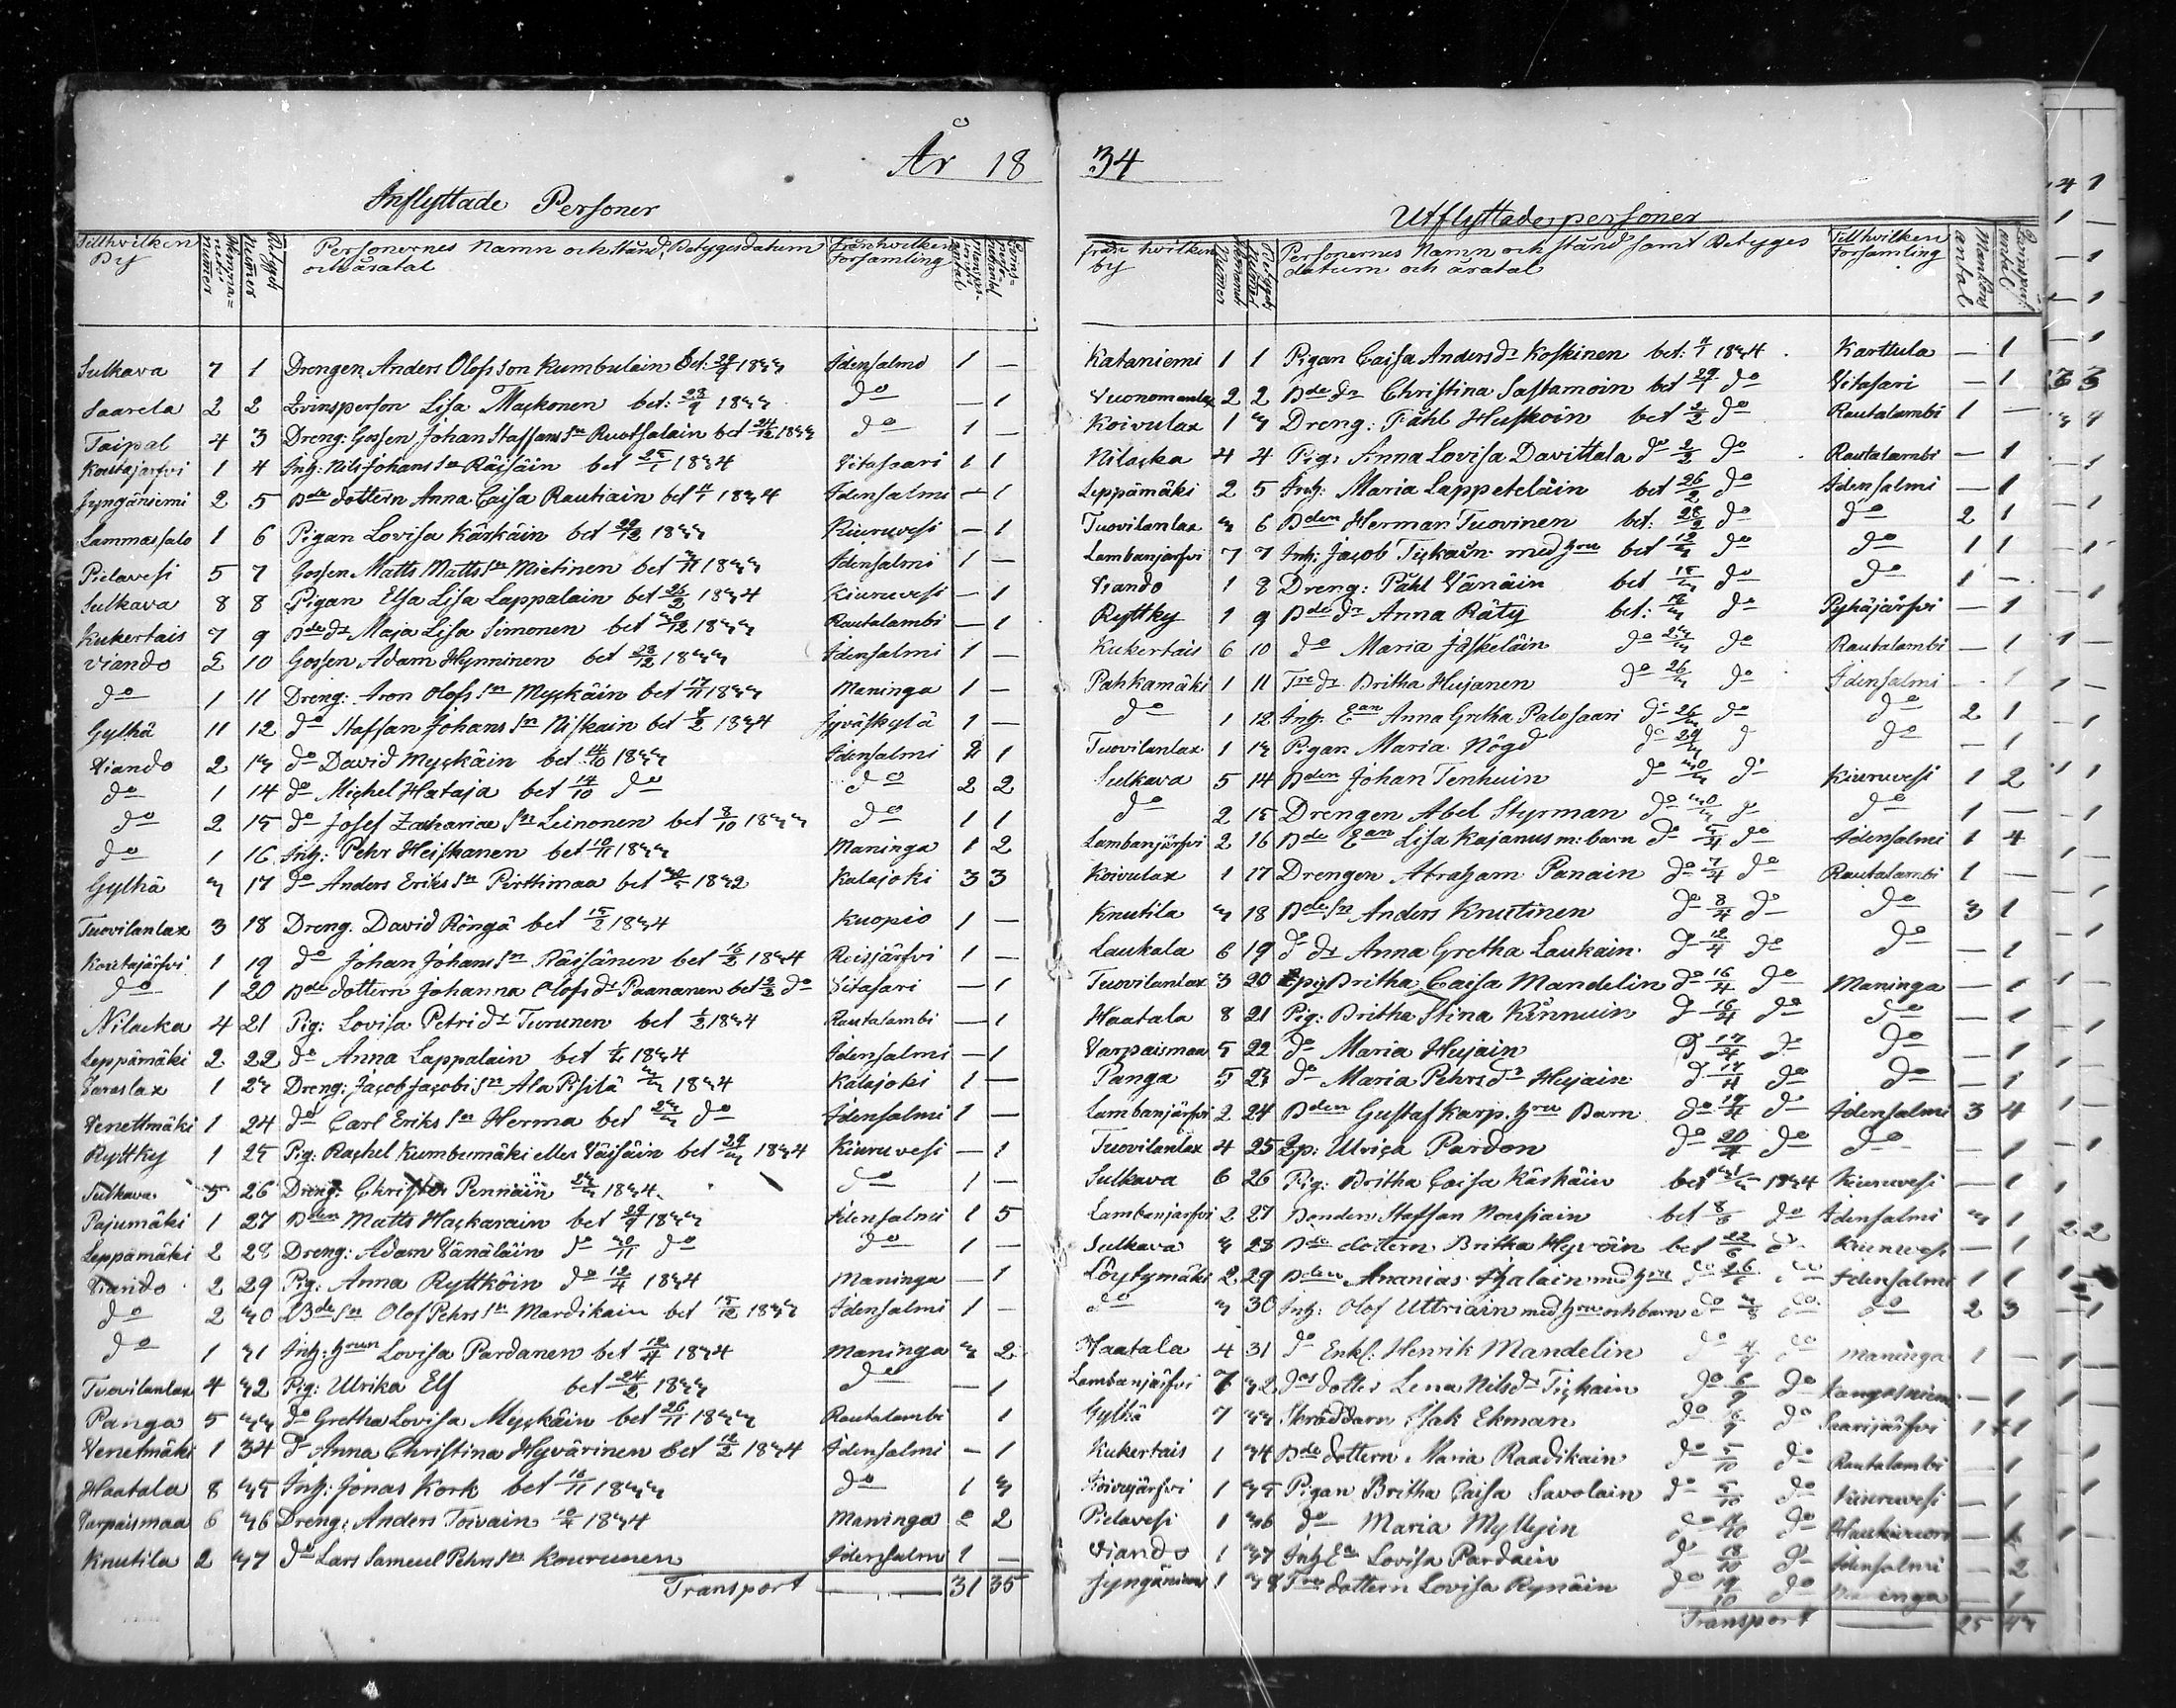 År 18
Inflyttade Personer
Till hvilken By
Personernes Namn och Stånd, Betygesdatum och åratal
Från hvilken Församling
Sulkava 7 1 Drengen Anders Olofsson Kumbulain Bet: 29/9 1833 Idensalmo 1 —
Saarela 2 2 Qvinsperson Lisa Maskonen bet: 28/9 1833 do — 1
Taipal 4 3 Dreng: Gossen Johan Staffans Sn Ruotsalain bet 24/12 1833 do 1 —
Koutajärfvi 1 4 Inh: Nils Johans Sn Räisäin bet 25/1 1834 Vitasaari 1 1
Jyngäniemi 2 5 Bde dottern Anna Caisa Rautiain bet 1834 Idensalmi — 1
Lammassalo 1 6 Pigan Lovisa Kärkäin bet 29/12 1833 Kiuruvesi — 1
Pielavesi 5 7 Gossen Matts Matts Sn Mietinen bet 1833 Idensalmi 1 —
Sulkava 8 8 Pigan Elsa Lisa Lappalain bet 26/2 1834 Kiuruvesi — 1
Kukertais 7 9 Bde dr Maja Lisa Simonen bet 30/12 1833 Rautalambi — 1
Viando 2 10 Gossen Adam Hynninen bet 28/12 1833 Idensalmi 1 —
do 1 11 Dreng: Aron Olofs Sn Myskäin bet 17/11 1833 Maninga 1 —
Gylhä 11 12 do Staffan Johans Sn Niskain bet 8/2 1834 Jyväskylä 1 —
Viando 2 13 do David Myskäin bet 14/10 1833 Idensalmi 2 1
do 1 14 do Michel Hataja bet 14/10 do do 2 2
do 2 15 do Josef Zachariæ Sn Leinonen bet 8/10 1833 do 1 1
do 1 16 Inh: Pehr Heiskanen bet 10/11 1833 Maninga 1 2
Gylhä 3 17 do Anders Eriks Sn Pirttimaa bet 30/5 1832 Kalajoki 3 3
Tuovilanlax 3 18 Dreng. David Röngä bet 15/2 1834 Kuopio 1 —
Koutajärfvi 1 19 do Johan Johans Sn Räisänen bet 16/2 1834 Reisjärfvi 1 —
do 1 20 Bde dottern Johanna Olofs dr Paananen bet 12/2 do Vitasari — 1
Nilacka 4 21 Pig: Lovisa Petri dr Turunen bet 1/2 1834 Rautalambi — 1
Leppämäki 2 22 do Anna Lappalain bet 1834 Idensalmi — 1
Taraslax 1 23 Dreng: Jacob Jacobi Sn Ala Pihlä 1834 Kalajoki 1 —
Venettmäki 1 24 do Carl Eriks Sn Herma bet 23/3 do Idensalmi 1 —
Ryttky 1 25 Pig: Rachel Kumbumäki eller Väisäin bet 29/3 1834 Kiuruvesi — 1
Sulkava 5 26 Dreng: Christer Pennäin 23/3 1834 do 1 —
Pajumäki 1 27 Bden Matts Hackarain bet 29/9 1833 Idensalmi 1 5
Leppämäki 2 28 Dreng: Adam Vänäläin do 30/11 do do 1 —
Viando 2 29 Pig: Anna Ryttköin do 12/4 1834 Maninga — 1
do 2 30 Bde Sn Olof Pehrs Sn Mardikain bet 15/12 1833 Idensalmi 1 —
do 1 31 Inh: hrun Lovisa Pardanen bet 12/4 1834 Maninga 3 2
Tuovilanlax 4 32 Pig: Ulrika Elf bet 24/2 1833 do — 1
Panga 5 33 do Gretha Lovisa Myskäin bet 26/11 1833 Rautalambi 1
Venetmäki 1 34 do Anna Christina Hyvärinen bet 12/2 1834 Idensalmi — 1
Haatala 8 35 Inh: Jonas Kork bet 16/11 1833 do 1 3
Varpaismaa 6 36 Dreng: Anders Toivain 1834 Maninga 2 2
Knutila 2 37 do Lars Sameul Pehrs Sn Kourunen Idensalm 1 —
Transport — 31 35
34
Utflyttade personer
från hvilken by
Personernes Namn och stånd samt Betyges datum och åratal
Till hvilken Församling
Kataniemi 1 1 Pigan Caisa Anders dr Koskinen bet: 1834 Karttula — 1
Vuonomanlax 2 2 Bde dr Christina Sastamoin bet 29/1 do Vitasari — 1
Koivulax 1 3 Dreng: Påhl Huskoin bet 2/2 do Rautalambi 1 —
Nilacka 4 4 Pig: Anna Lovisa Davittala do 2/2 do Rautalambi — 1
Leppämäki 2 5 Inh: Maria Lappeteläin bet 26/2 do Idensalmi — 1
Tuovilanlax 3 6 Bden Herman Tuovinen bet: 28/2 do do 2 1
Lambanjärfvi 7 7 Inh: Jacob Tickain med hru bet 12/3 do do 1 1
Viando 1 8 Dreng: Påhl Vänäin bet 15/3 do do 1 —
Ryttky 1 9 Bde dr Anna Räty bet: do Pyhäjärfvi — 1
Kukertais 6 10 do Maria Jäskeläin do 23/3 do Rautalambi — 1
Pahkamäki 1 11 Tre dr Britha Hujanen do 26/3 do Idensalmi — 1
do 1 12 Inh: Ean Anna Gretha Palosaari do 26/3 do do 2 1
Tuovilanlax 1 13 Pigan Maria Nögd do 29/3 d do — 1
Sulkava 5 14 Bden Johan Tenhuin do 30/3 do Kiuruvesi 1 2
do 2 15 Drengen Abel Styrman do 30/3 do do 1 —
Lambanjärfvi 2 16 Bde Ean Lisa Kajanus m: barn do do Idensalmi 1 4
Koivulax 1 17 Drengen Abraham Panain do 7/4 do Rautalambi 1 —
Knutila 3 18 Bde Sn Anders Knutinen do 8/4 do do 3 1
Laukala 6 19 do dr Anna Gretha Laukain do 12/4 do do — 1
Tuovilanlax 3 20 Britha Caisa Mandelin do 16/4 do Maninga — 1
Haatala 8 21 Pig: Britha Stina Kinnuin do 16/4 do do — 1
Varpaismaa 5 22 do Maria Hujain do 17/4 do do — 1
Panga 5 23 do Maria Pehrs dr Hujain do 17/4 do do — 1
Lambanjärfvi 2 24 Bden Gustaf Karp. hru Barn do 19/4 do Idensalmi 3 4
Tuovilanlax 4 25 Qp: Ulrica Pardon do 20/4 do do — 1
Sulkava 6 26 Pig: Britha Caisa Käskäin bet 1834 Kiuruvesi — 1
Lambanjärfvi 2 27 Bonden Staffan Nousiain bet do Idensalmi 3 1
Sulkava 3 28 Bde dottern Britha Hyvöin bet 22/6 do Kiuruvesi — 1
Löytymäki 2 29 Bden Ananias med hru do 26/6 do Idensalmi 1 1
do 3 30 Inh: Olof Uttriain med hru och barn do 3/8 do do 2 3
Haatala 4 31 do Enkl: Henrik Mandelin do 4/9 do Maninga 1 — 
Lambanjärfvi 7 32 dos dotter Lena Nils dr Tickain do 6/9 do Kangasniemi — 1
Gylhä 7 33 Skräddarn Isak Ekman do do Saarijärfvi 1 1
Kukertais 1 34 Bde dottern Maria Raadikain do 5/10 do Rautalambi — 1
Koivujärfvi 1 35 Pigan Britha Caisa Savolain do 5/10 do Kiuruvesi — 1
Pielavesi 1 36 do Maria Myllyin do do — 1
Viando 1 37 Inh: Ea Lovisa Pardain do 18/10 do Idensalmi — 2
Jyngäniemi 1 38 Tre dottern Lovisa Rynäin do 19/10 do Maninga — 1
Transport — 25 43